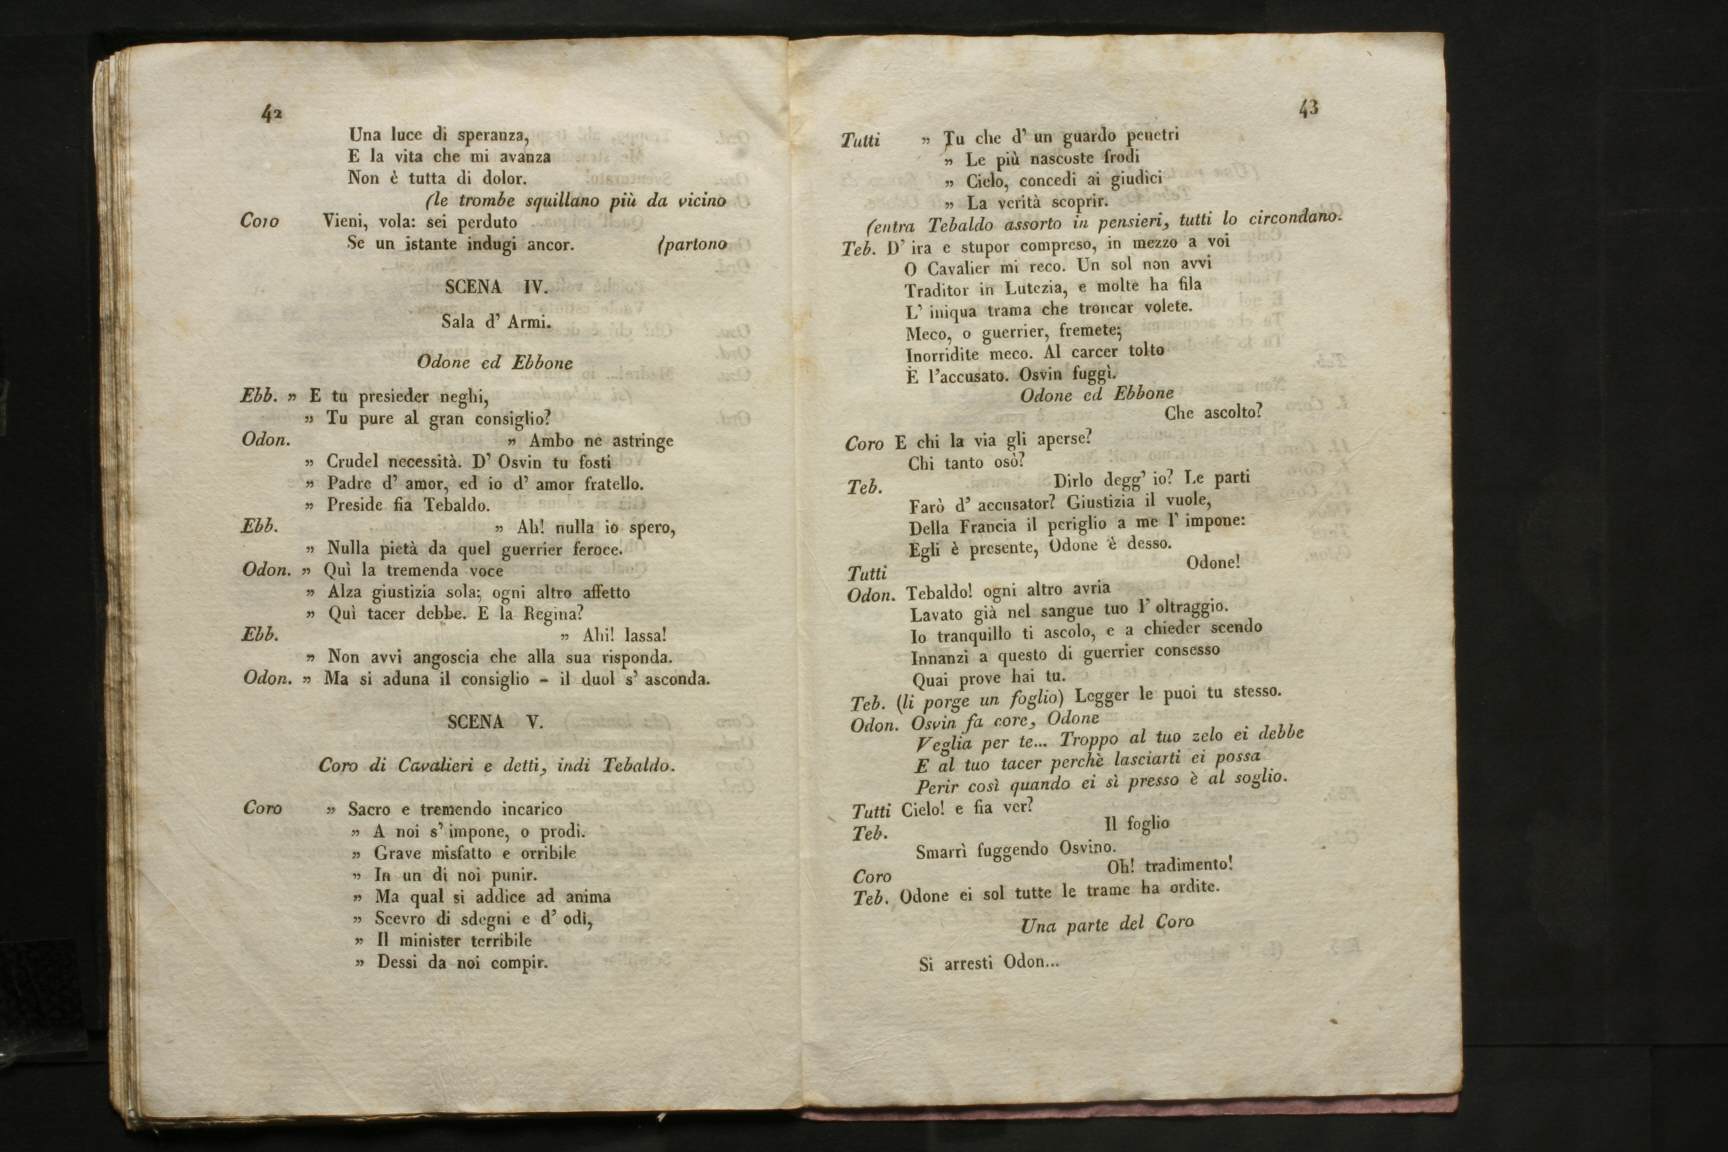 42
Una luce di speranza,
E la vita che mi avanza
Non è tutta di dolor.
(le trombe squillano più da vicino
Coro Vieni, vola: sei perduto
Se un istante indugi ancor. (partono
SCENA IV.
Sala d' Armi.
Odone ed Ebbone
Ebb. „ E tu presieder neghi,
„ Tu pure al gran consiglio?
Odon. „ Ambo ne astringe
„ Crudel necessità. D' Osvin tu fosti
„ Padre d' amor, ed io d' amor fratello.
„ Preside fia Tebaldo.
Ebb. „ Ah! nulla io spero,
„ Nulla pietà da quel guerrier feroce.
Odon. „ Quì la tremenda voce
„ Alza giustizia sola; ogni altro affetto
„ Quì tacer debbe. E la Regina?
Ebb. „ Ahi! lassa!
„ Non avvi angoscia che alla sua risponda.
Odon. „ Ma si aduna il consiglio - il duol s' asconda.
SCENA V.
Coro di Cavalieri e detti, indi Tebaldo.
Coro „ Sacro e tremendo incarico
„ A noi s' impone, o prodi.
„ Grave misfatto e orribile
„ In un di noi punir.
„ Ma qual si addice ad anima
„ Scevro di sdegni e d' odi,
„ Il minister terribile
„ Dessi da noi compir.
43
Tutti „ Tu che d' un guardo penetri
„ Le più nascoste frodi
„ Cielo, concedi ai giudici
„ La verità scoprir.
(entra Tebaldo assorto in pensieri, tutti lo circondano.
Teb. D' ira e stupor compreso, in mezzo a voi
O Cavalier mi reco. Un sol non avvi
Traditor in Lutezia, e molte ha fila
L' iniqua trama che troncar volete.
Meco, o guerrier, fremete;
Inorridite meco. Al carcer tolto
È l'accusato. Osvin fuggì.
Odone ed Ebbone
Che ascolto?
Coro E chi la via gli aperse?
Chi tanto osò?
Teb. Dirlo degg' io? Le parti
Farò d' accusator? Giustizia il vuole,
Della Francia il periglio a me l' impone:
Egli è presente, Odone è desso.
Tutti Odone!
Odon. Tebaldo! ogni altro avria
Lavato già nel sangue tuo l' oltraggio.
Io tranquillo ti ascolo, e a chieder scendo
Innanzi a questo di guerrier consesso
Quai prove hai tu.
Teb. (li porge un foglio) Legger le puoi tu stesso.
Odon. Osvin fa core, Odone
Veglia per te... Troppo al tuo zelo ei debbe
E al tuo tacer perchè lasciarti ei possa
Perir così quando ei sì presso è al soglio.
Tutti Cielo! e fia ver?
Teb. Il foglio
Smarrì fuggendo Osvino.
Coro Oh! tradimento!
Teb. Odone ei sol tutte le trame ha ordite.
Una parte del Coro
Si arresti Odon...